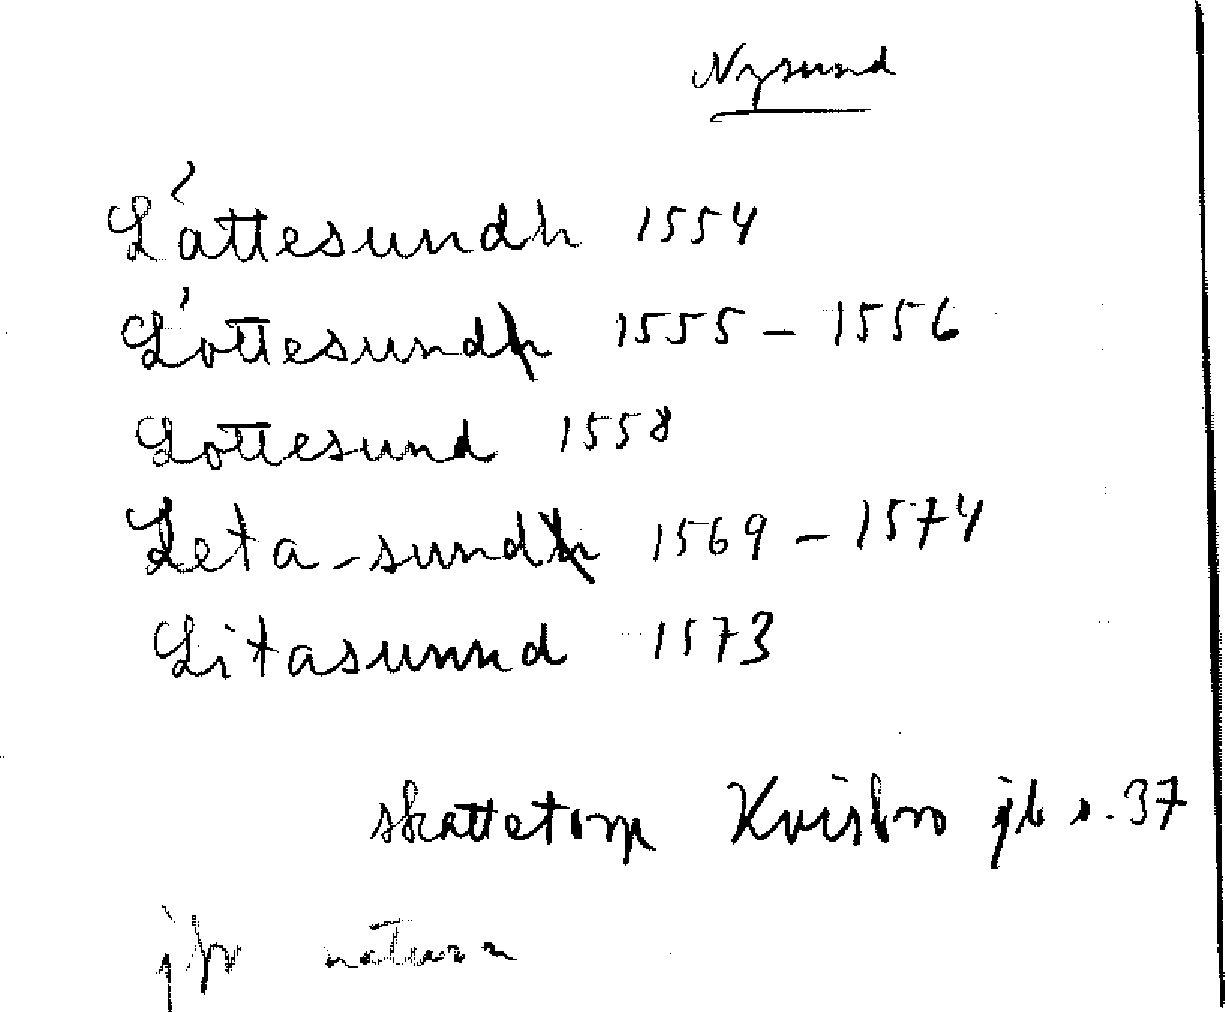 Nysund
Låttesundh 1554
Lottesundh 1555 - 1556
Lottesund 1558
Leta-sundh 1569 - 1574
Litasunnd 1573
skattetorp Kvisbro jb s. 37
jfr naturn